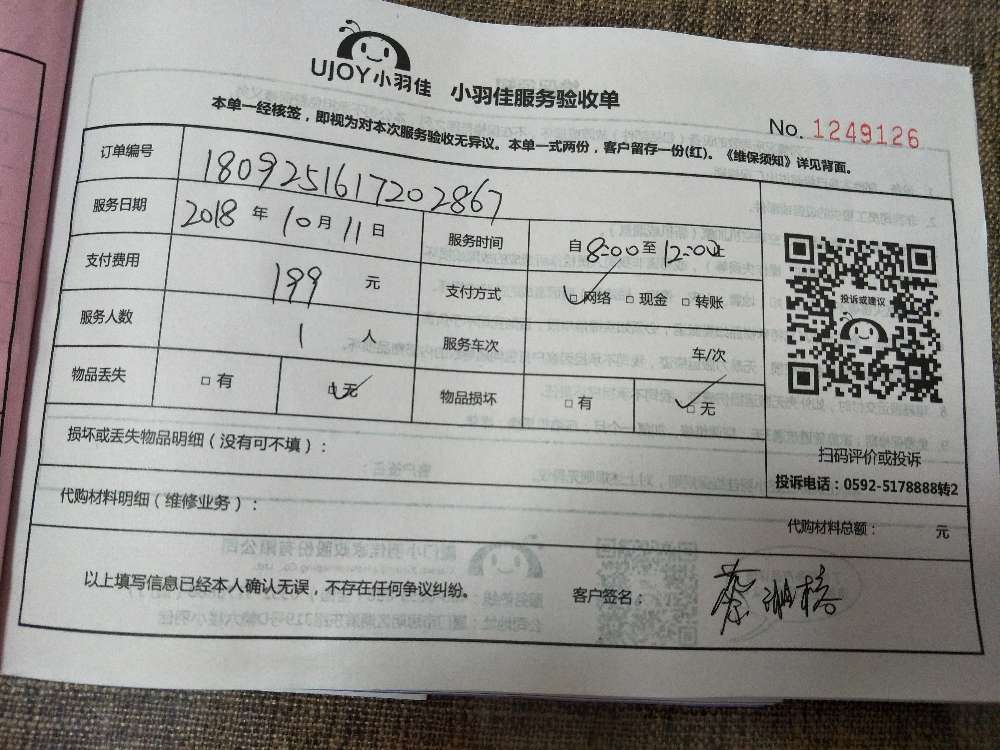 UJOY小羽佳 小羽佳服务验收单
No. 1249126
本单一经核签，即视为对本次服务验收无异议。本单一式两份，客户留存一份(红)。《维保须知》详见背面。
订单编号 1809251617202867
服务日期 2018 年 10 月 11 日 服务时间 自 8:00 至 12:00 止
支付费用 199 元 支付方式 □网络 □现金 □转账
服务人数 1 人 服务车次 车/次
物品丢失 □有 □无 物品损坏 □有 □无
投诉或建议
扫码评价或投诉
投诉电话：0592-5178888转2
损坏或丢失物品明细（没有可不填）：
代购材料明细（维修业务）： 代购材料总额： 元
以上填写信息已经本人确认无误，不存在任何争议纠纷。 客户签名： 蔡